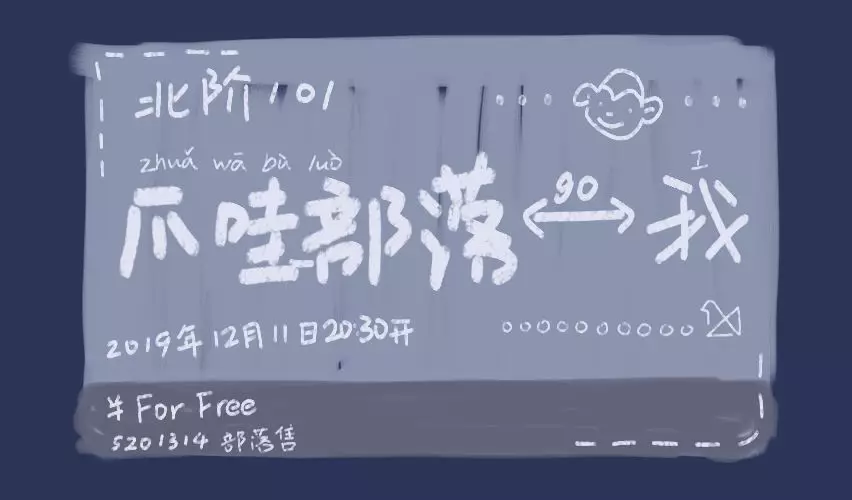 北阶101
zhuǎ wā bù luò
爪哇部落
90
I
我
2019年12月11日20:30开
¥ For Free
5201314 部落售